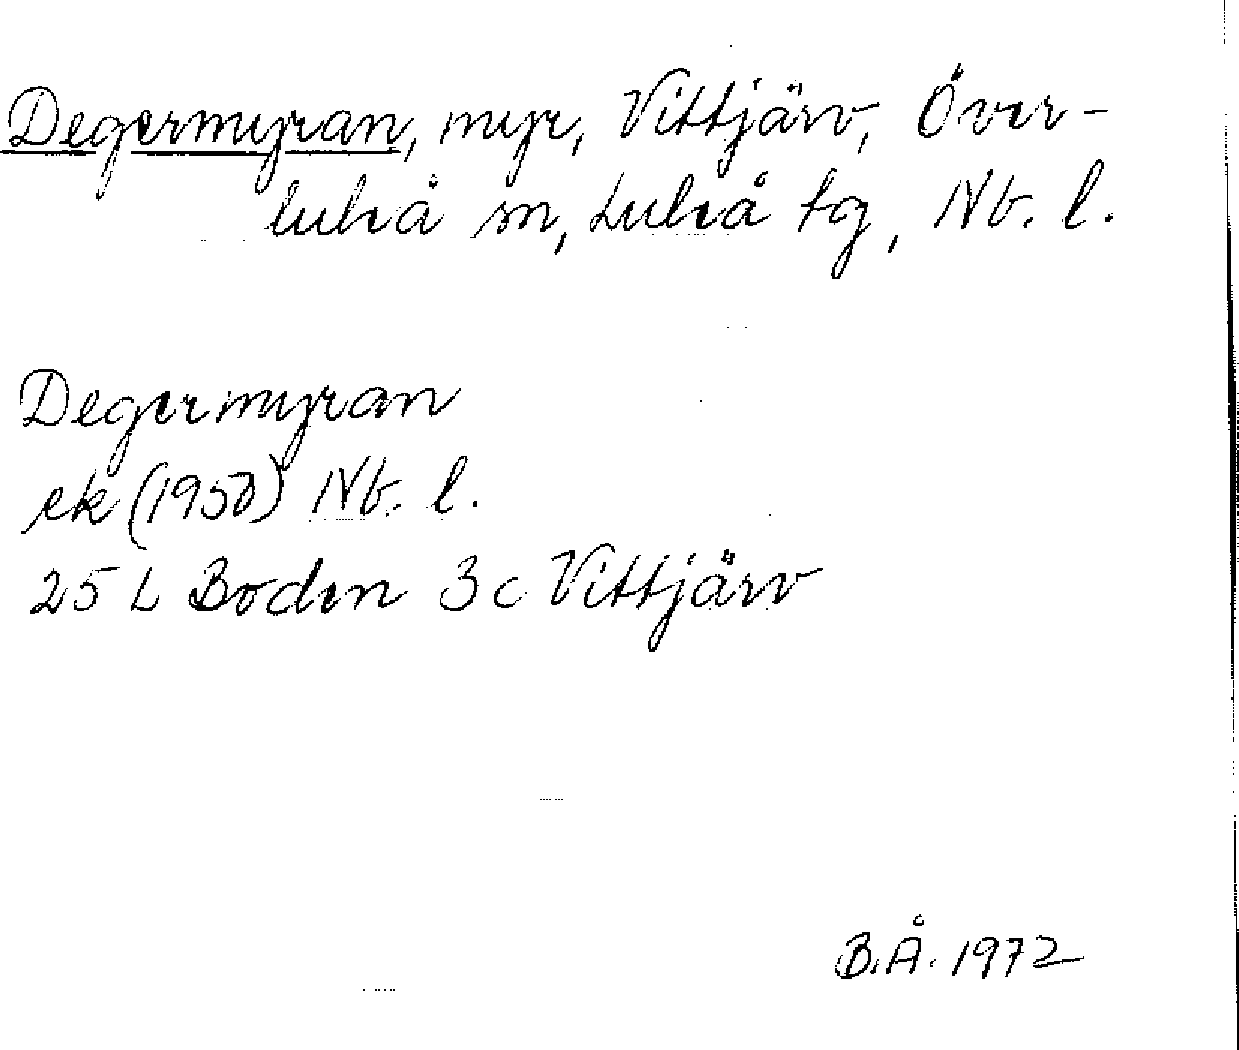 Degermyran, myr, Vittjärv, Över-
luleå sn, Luleå tg, Nb. l.
Degermyran
ek (1950) Nb. l.
25 L Boden 3c Vittjärv
B.Å. 1972